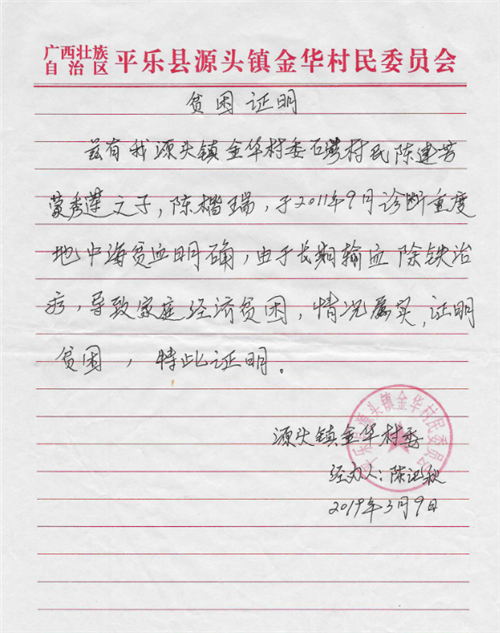 广西壮族自治区 平乐县源头镇金华村民委员会
贫困证明
兹有我源头镇金华村委石湾村民陈建芳
蒙秀莲之子，陈楷瑞，于2011年9月诊断重度
地中海贫血明确，由于长期输血除铁治
疗，导致家庭经济贫困，情况属实，证明
贫困，特此证明。
源头镇金华村委
经办人：陈
2019年3月9日